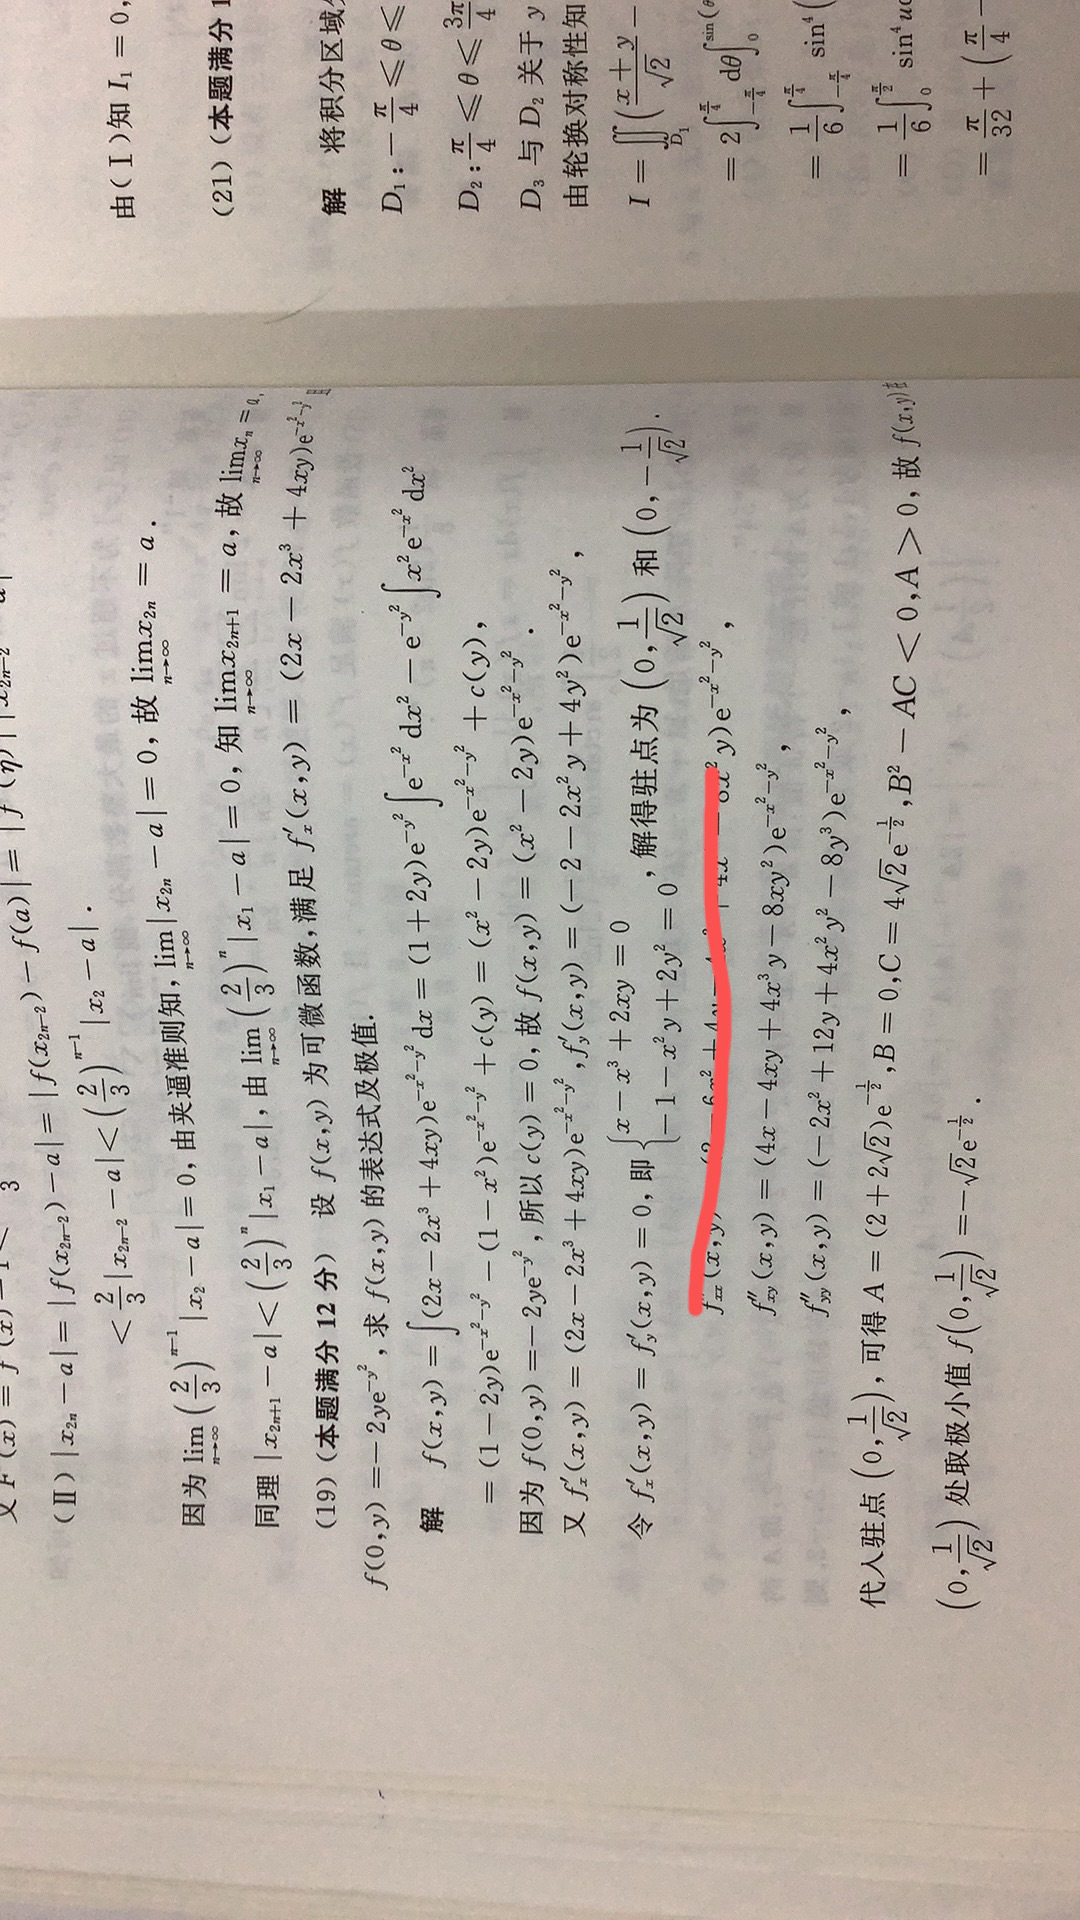 (Ⅱ) |x₂ₙ − a| = |f(x₂ₙ₋₂) − a| = |f(x₂ₙ₋₂) − f(a)| = |f′(η)||x₂ₙ₋₂
< 2/3 |x₂ₙ₋₂ − a| < (2/3)ⁿ⁻¹ |x₂ − a|.
因为 lim_{n→∞} (2/3)ⁿ⁻¹ |x₂ − a| = 0, 由夹逼准则知, lim_{n→∞} |x₂ₙ − a| = 0, 故 lim_{n→∞} x₂ₙ = a.
同理 |x₂ₙ₊₁ − a| < (2/3)ⁿ |x₁ − a|, 由 lim_{n→∞} (2/3)ⁿ |x₁ − a| = 0, 知 lim_{n→∞} x₂ₙ₊₁ = a, 故 lim_{n→∞} xₙ = a,
(19) (本题满分 12 分) 设 f(x,y) 为可微函数, 满足 f′ₓ(x,y) = (2x − 2x³ + 4xy)e^{−x²−y²}
f(0,y) = −2ye^{−y²}, 求 f(x,y) 的表达式及极值.
解 f(x,y) = ∫(2x − 2x³ + 4xy)e^{−x²−y²} dx = (1 + 2y)e^{−y²} ∫e^{−x²} dx² − e^{−y²} ∫x² e^{−x²} dx²
= (1 − 2y)e^{−x²−y²} − (1 − x²)e^{−x²−y²} + c(y) = (x² − 2y)e^{−x²−y²} + c(y),
因为 f(0,y) = −2ye^{−y²}, 所以 c(y) = 0, 故 f(x,y) = (x² − 2y)e^{−x²−y²}.
又 f′ₓ(x,y) = (2x − 2x³ + 4xy)e^{−x²−y²}, f′_y(x,y) = (−2 − 2x²y + 4y²)e^{−x²−y²},
令 f′ₓ(x,y) = f′_y(x,y) = 0, 即 { x − x³ + 2xy = 0
−1 − x²y + 2y² = 0 , 解得驻点为 (0, 1/√2) 和 (0, −1/√2).
f″ₓₓ(x,y) y)e^{−x²−y²},
f″ₓᵧ(x,y) = (4x − 4xy + 4x³y − 8xy²)e^{−x²−y²},
f″ᵧᵧ(x,y) = (−2x² + 12y + 4x²y² − 8y³)e^{−x²−y²},
代入驻点 (0, 1/√2), 可得 A = (2 + 2√2)e^{−1/2}, B = 0, C = 4√2e^{−1/2}, B² − AC < 0, A > 0, 故 f(x,y) 在
(0, 1/√2) 处取极小值 f(0, 1/√2) = −√2e^{−1/2}.
由(Ⅰ)知 I₁ = 0,
(21) (本题满分 1
解 将积分区域
D₁: −π/4 ≤ θ ≤
D₂: π/4 ≤ θ ≤ 3π/4
D₃ 与 D₂ 关于 y
由轮换对称性知
I = ∬_{D₁} (x + y)/√2 −
= 2∫_{−π/4}^{π/4} dθ∫₀^{sin(θ
= 1/6 ∫_{−π/4}^{π/4} sin⁴(
= 1/6 ∫₀^{π/2} sin⁴ u
= π/32 + (π/4 −